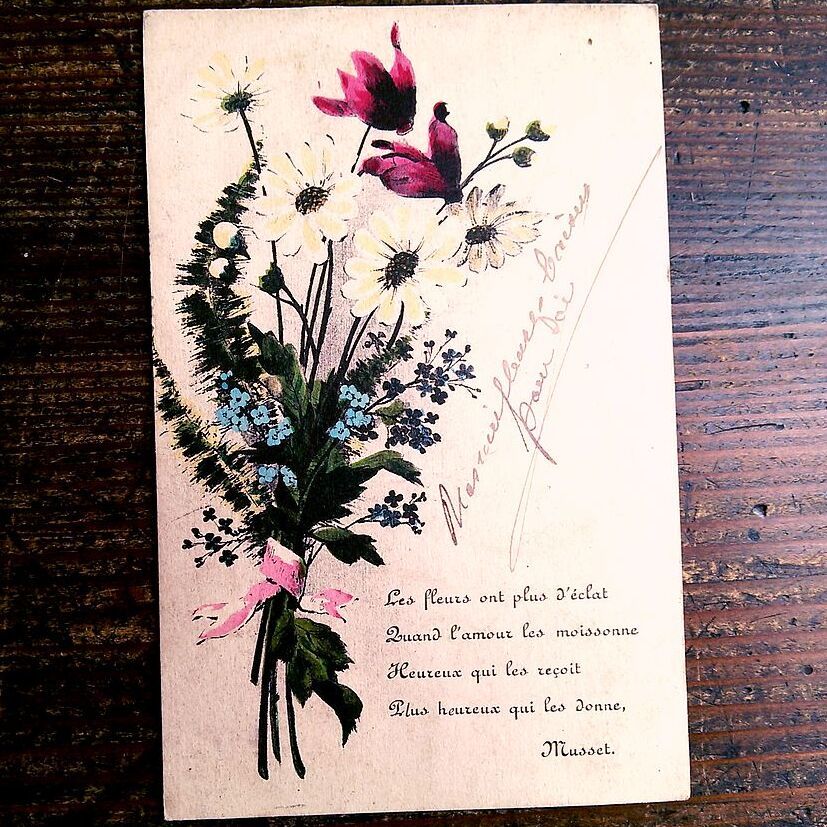 pour
Les fleurs ont plus d'éclat
Quand l'amour les moissonne
Heureux qui les reçoit
Plus heureux qui les donne,
Musset.